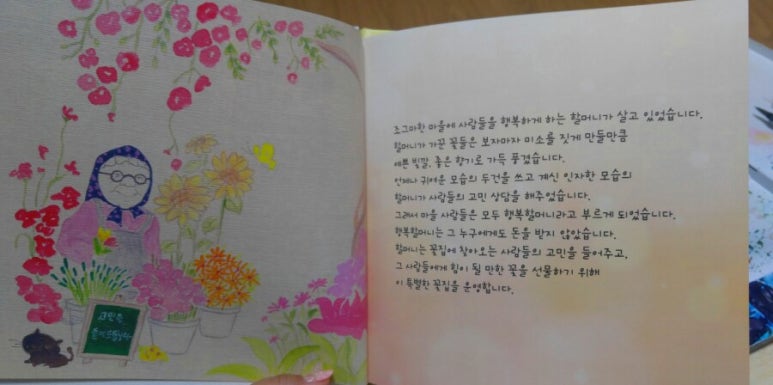 고민을
들어드립니다
조그마한 마을에 사람들을 행복하게 하는 할머니가 살고 있었습니다.
할머니가 가꾼 꽃들은 보자마자 미소를 짓게 만들만큼
예쁜 빛깔, 좋은 향기로 가득 풍겼습니다.
언제나 귀여운 모습의 두건을 쓰고 계신 인자한 모습의
할머니가 사람들의 고민 상담을 해주었습니다.
그래서 마을 사람들은 모두 행복할머니라고 부르게 되었습니다.
행복할머니는 그 누구에게도 돈을 받지 않았습니다.
할머니는 꽃집에 찾아오는 사람들의 고민을 들어주고,
그 사람들에게 힘이 될 만한 꽃을 선물하기 위해
이 특별한 꽃집을 운영합니다.